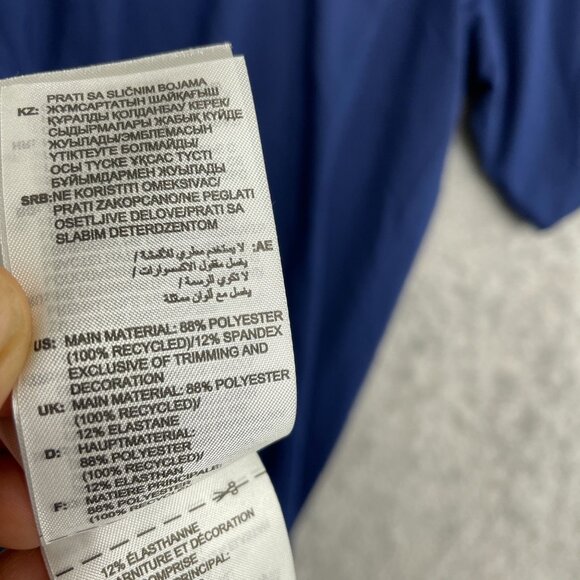 PRATI SA SLIČNIM BOJAMA
KZ: ЖҰМСАРТАТЫН ШАЙҚАҒЫШ
ҚҰРАЛДЫ ҚОЛДАНБАУ КЕРЕК/
СЫДЫРМАЛАРЫ ЖАБЫҚ КҮЙДЕ
ЖУЫЛАДЫ/ЭМБЛЕМАСЫН
ҮТІКТЕУГЕ БОЛМАЙДЫ/
ОСЫ ТҮСКЕ ҰҚСАС ТҮСТІ
БҰЙЫМДАРМЕН ЖУЫЛАДЫ
SRB: NE KORISTITI OMEKSIVAC/
PRATI ZAKOPCANO/NE PEGLATI
OSETLJIVE DELOVE/PRATI SA
SLABIM DETERDZENTOM
AE: لا يستخدم مطري للأقمشة/
يغسل مقفول الاكسسوارات/
لا تكوي الرسمة/
يغسل مع ألوان مماثلة
US: MAIN MATERIAL: 88% POLYESTER
(100% RECYCLED)/12% SPANDEX
EXCLUSIVE OF TRIMMING AND
DECORATION
UK: MAIN MATERIAL: 88% POLYESTER
(100% RECYCLED)/
12% ELASTANE
D: HAUPTMATERIAL:
88% POLYESTER
(100% RECYCLED)/
12% ELASTHAN
F: MATIÈRE PRINCIPALE:
88% POLYESTER
(100% RECYCLED)/
12% ÉLASTHANNE
GARNITURE ET DÉCORATION